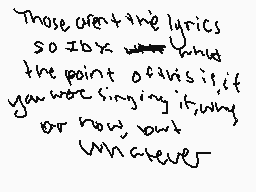 Those aren't the lyrics
so IDK what
the point of this is, if
you were singing it, wrong
or now, but
whatever